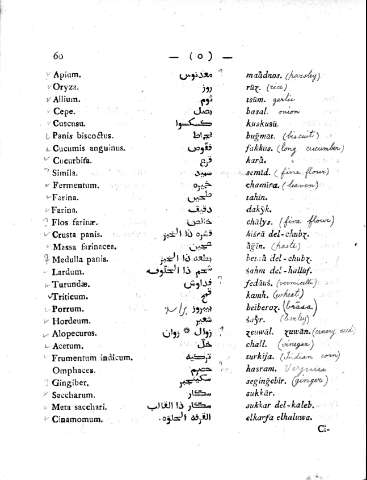 60 — ( 0 ) —
Apium. معدنوس maâdnos. (parsley)
Oryza. روز rûz. (rice)
Allium. ثوم tsûm. garlic
Cepe. بصل basal. onion
Cuscusu. كسكسوا kuskusû.
Panis biscoctus. بجماط buġmât. (biscuit)
Cucumis anguinus. فقوص fakkus. (long cucumber)
Cucurbita. قرع karâ.
Simila. سميد semîd. (fine flour)
Fermentum. خميره chamira. (leaven)
Farina. طحين tahin.
Farina. دقيق dakŷk.
Flos farinæ. خالص châlys. (fine flour)
Crusta panis. قشره ذا الخبز kisrâ del-chubz.
Massa farinacea. عجين âġin. (paste)
Medulla panis. ذا الخبز del-chubz.
Lardum. شحم ذا الحلوف sahm del-halluf.
Turundæ. فداوش fedâus. (vermicelli)
Triticum. قمح kamh. (wheat)
Porrum. beiberoz.
Hordeum. شعير (barley)
Alopecuros. زوال * زوان zeuwâl. zuwân.
Acetum. خل chall. (vinegar)
Frumentum indicum. تركيه turkija. (Indian corn)
Omphaces. حصرم hasram. Verjuice
Gingiber. سكينجبير seginġebir. (ginger)
Saccharum. سكار sukkâr.
Meta sacchari. سكار ذا القالب sukkar del-kaleb.
Cinamomum. القرفه الحلوه elkarfa elhaluwa.
Ci-